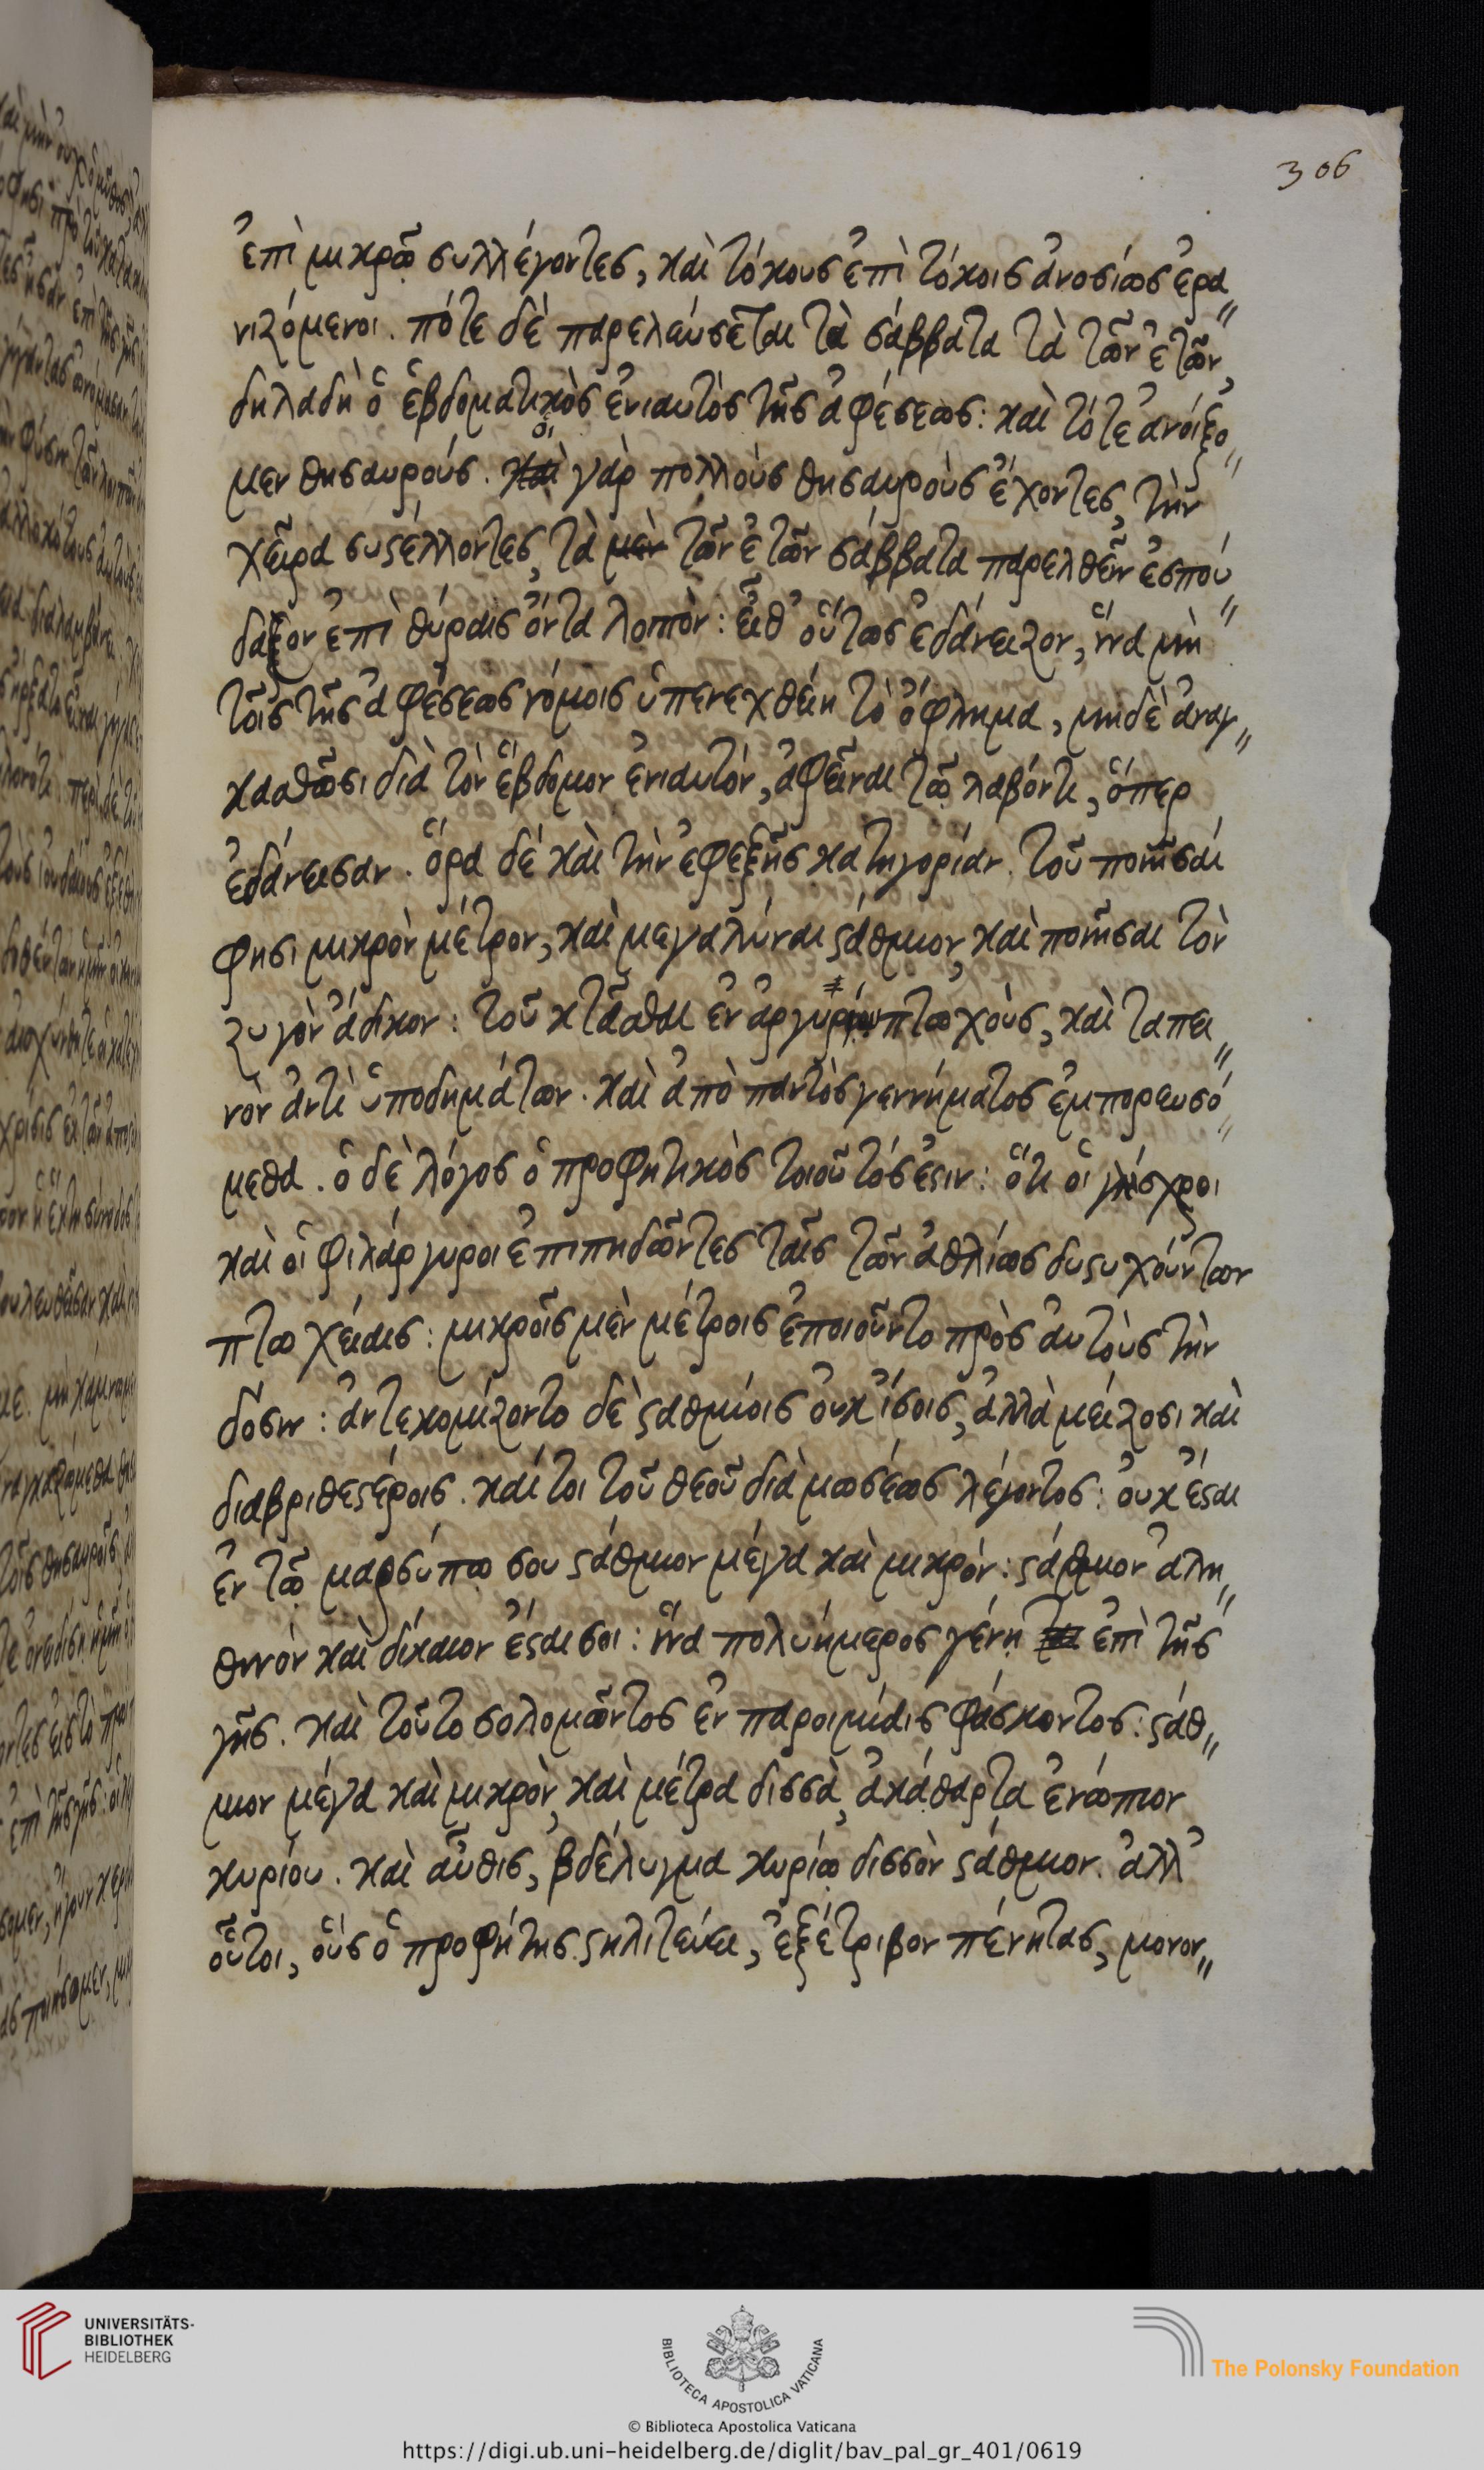 306
ἐπὶ μικρῷ συλλέγοντες, καὶ τόκους ἐπὶ τόκοις ἀνοσίως ἐρα〃
νιζόμενοι. πότε δὲ παρελεύσεται τὰ σάββατα τὰ τῶν ἐτῶν,
δηλαδὴ ὁ ἑβδοματικὸς ἐνιαυτὸς τῆς ἀφέσεως: καὶ τότε ἀνοίξο〃
μεν θησαυρούς. οἱ γὰρ πολλοὺς θησαυροὺς ἔχοντες, τὴν
χεῖρα συστέλλοντες, τὰ μὲν τῶν ἐτῶν σάββατα παρελθεῖν ἐσπού〃
δαζον ἐπὶ θύραις ὄντα λοιπόν: εἶθ' οὕτως ἐδάνειζον, ἵνα μὴ
τοῖς τῆς ἀφέσεως νόμοις ὑπενεχθείη τὸ ὄφλημα, μηδὲ ἀναγ〃
κασθῶσι διὰ τὸν ἕβδομον ἐνιαυτόν, ἀφεῖναι τῷ λαβόντι, ὅπερ
ἐδάνεισαν. ὅρα δὲ καὶ τὴν ἐφεξῆς κατηγορίαν. τοῦ ποιῆσαί
φησι μικρὸν μέτρον, καὶ μεγαλύναι στάθμιον, καὶ ποιῆσαι τὸν
ζυγὸν ἄδικον: τοῦ κτᾶσθαι ἐν ἀργυρίῳ πτωχοὺς, καὶ ταπει〃
νὸν ἀντὶ ὑποδημάτων. καὶ ἀπὸ παντὸς γεννήματος ἐμπορευσό〃
μεθα. ὁ δὲ λόγος ὁ προφητικὸς τοιοῦτός ἐστιν: ὅτι οἱ γλίσχροι
καὶ οἱ φιλάργυροι ἐπιπηδῶντες ταῖς τῶν ἀθλίως δυστυχούντων
πτωχείαις: μικροῖς μὲν μέτροις ἐποιοῦντο πρὸς αὐτοὺς τὴν
δόσιν: ἀντεκομίζοντο δὲ σταθμίοις οὐκ ἴσοις, ἀλλὰ μείζοσι καὶ
διαβριθεστέροις. καί τοι τοῦ θεοῦ διὰ μωσέως λέγοντος: οὐκ ἔσται
ἐν τῷ μαρσύπῳ σου στάθμιον μέγα καὶ μικρόν: στάθμιον ἀλη〃
θινὸν καὶ δίκαιον ἔσται σοι: ἵνα πολυήμερος γένῃ ἐπὶ τῆς
γῆς. καὶ τοῦτο σολομῶντος ἐν παροιμίαις φάσκοντος. στάθ〃
μιον μέγα καὶ μικρὸν, καὶ μέτρα δισσὰ, ἀκάθαρτα ἐνώπιον
κυρίου. καὶ αὖθις, βδέλυγμα κυρίῳ δισσὸν στάθμιον. ἀλλ'
οὗτοι, οὓς ὁ προφήτης στηλιτεύει, ἐξέτριβον πένητας, μονον〃
UNIVERSITÄTS-
BIBLIOTHEK
HEIDELBERG
BIBLIOTECA APOSTOLICA VATICANA
The Polonsky Foundation
© Biblioteca Apostolica Vaticana
https://digi.ub.uni-heidelberg.de/diglit/bav_pal_gr_401/0619